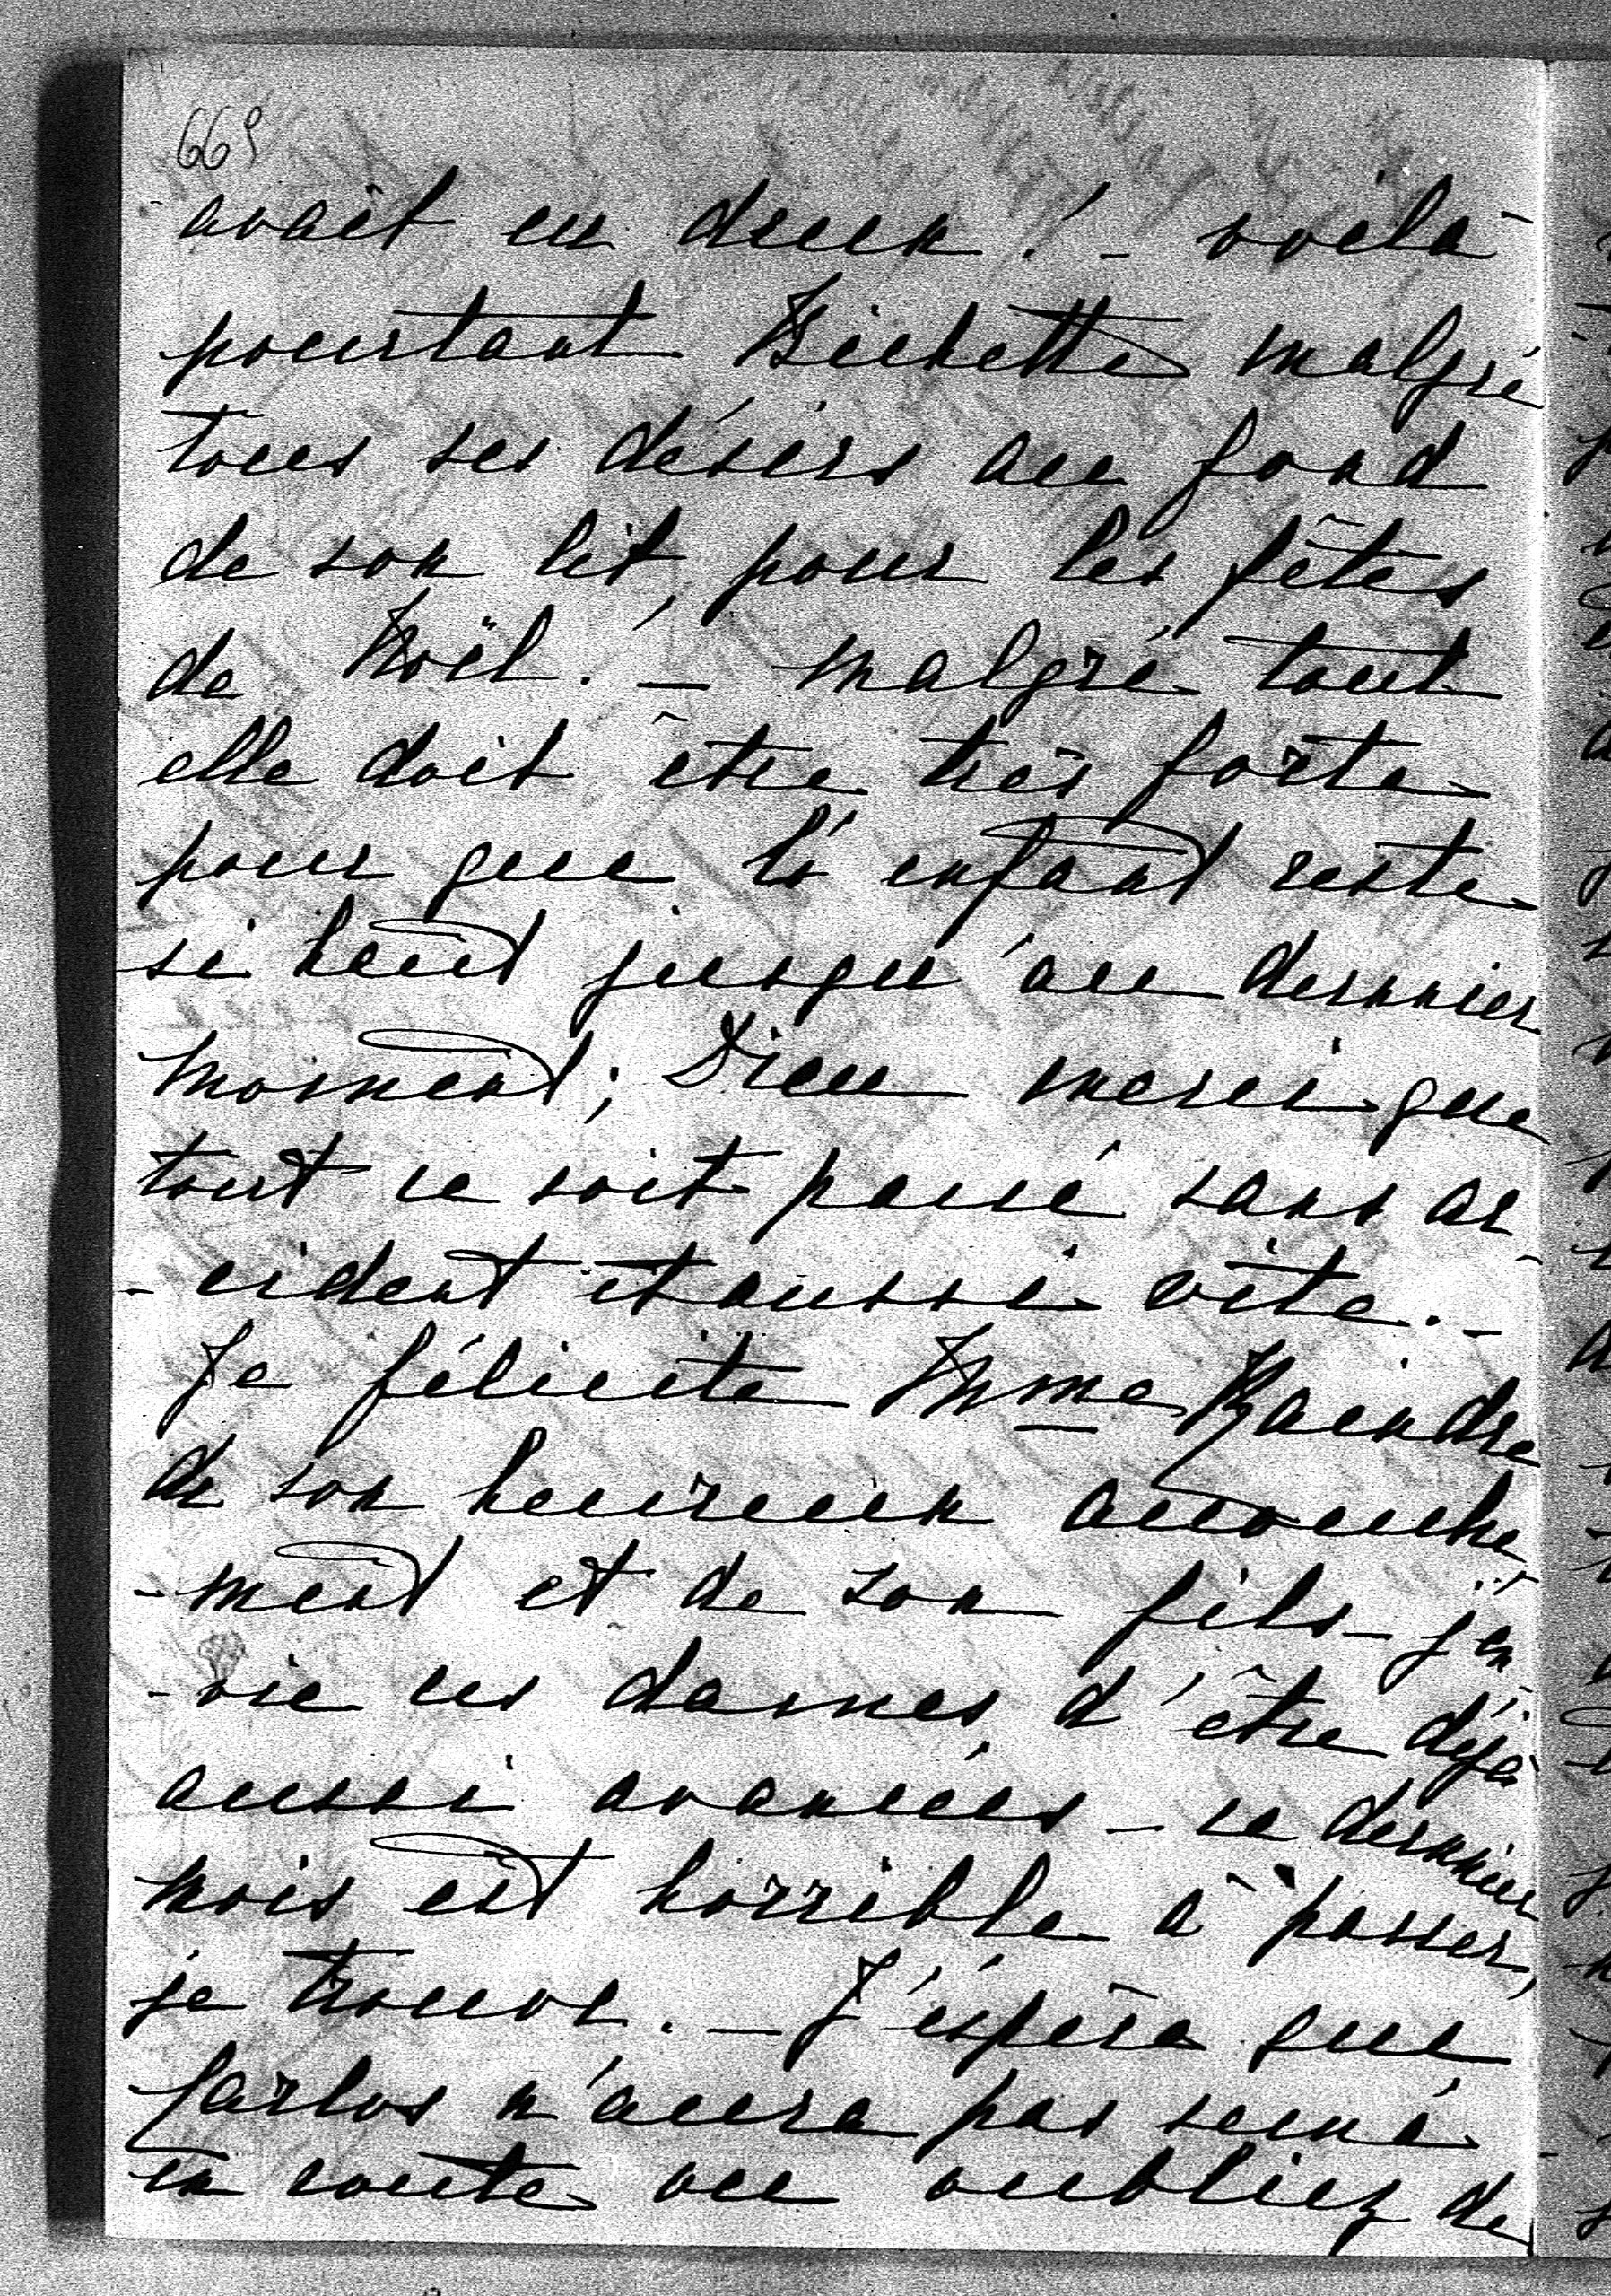 669
avait eu deux! - voilà
pourtant Bichette malgré
tous ses désirs au fond
de son lit, pour les fêtes
de Noël! - malgré tout
elle doit être très forte
pour que l'enfant reste
si haut jusqu'au dernier
moment; Dieu merci que
tout se soit passé sans ac
-cident et aussi vite. -
Je félicite Mme Raindre
de son heureux accouche
-ment et de son fils - j'en
-vie ces dames, d'être déjà
aussi avancées - ce dernier
mois est horrible à passer,
je trouve. - J'espère que
Carlos n'aura pas semé
en route ou oubliez de